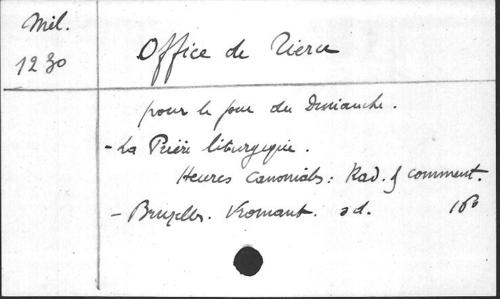 Mil.
1230
Office de Tierce
pour le jour du Dimanche.
- La Prière liturgique.
Heures canoniales: Trad. & comment.
- Bruxelles. Vromant. s d. 16°